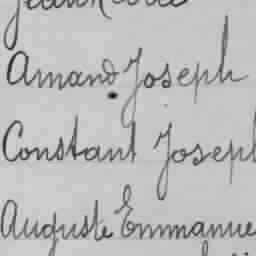 Amand Joseph
Constant Joseph
Auguste Emmanue